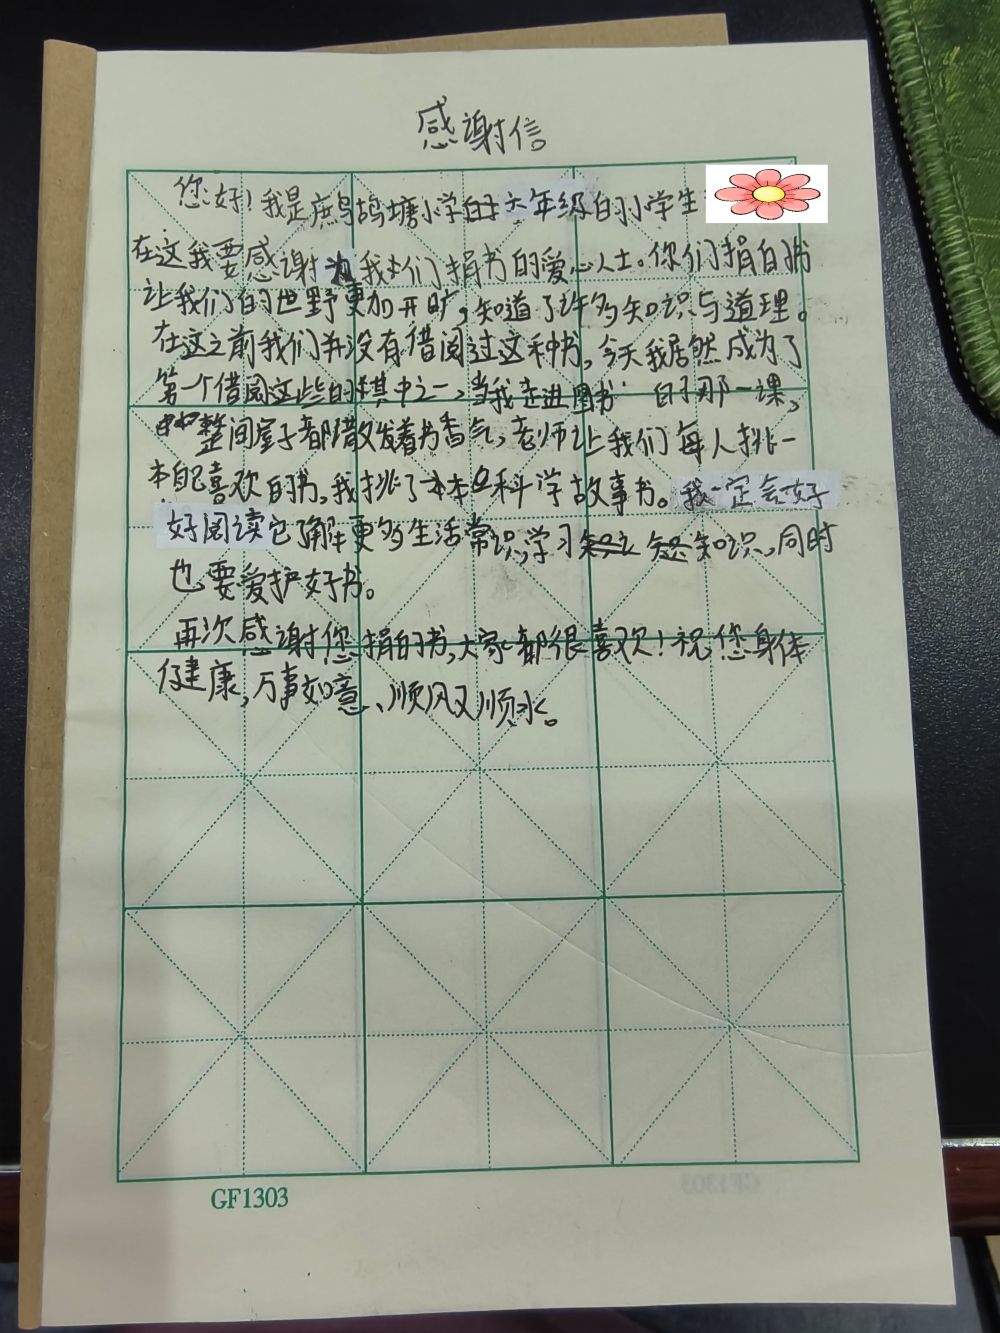 感谢信
您好！我是鹧鸪塘小学的六年级的小学生
在这我要感谢为我们捐书的爱心人士。你们捐的书
让我们的世野更加开旷，知道了许多知识与道理。
在这之前我们并没有借阅过这种书，今天我居然成为了
第一个借阅这些的其中之一，当我走进图书 的那一课，
整间屋子都散发着书香气，老师让我们每人挑一
本自己喜欢的书，我挑了本科学故事书。我一定会好
好阅读它了解更多生活常识，学习知识，同时
也要爱护好书。
再次感谢您捐的书，大家都很喜欢！祝您身体
健康，万事如意、顺风又顺水。
GF1303